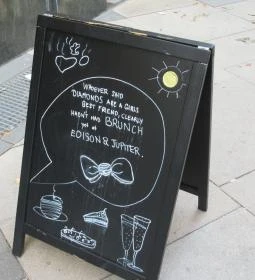 WHOEVER SAID
DIAMONDS ARE A GIRLS
BEST FRIEND, CLEARLY
HADN'T HAD BRUNCH
yet at
EDISON & JUPITER.